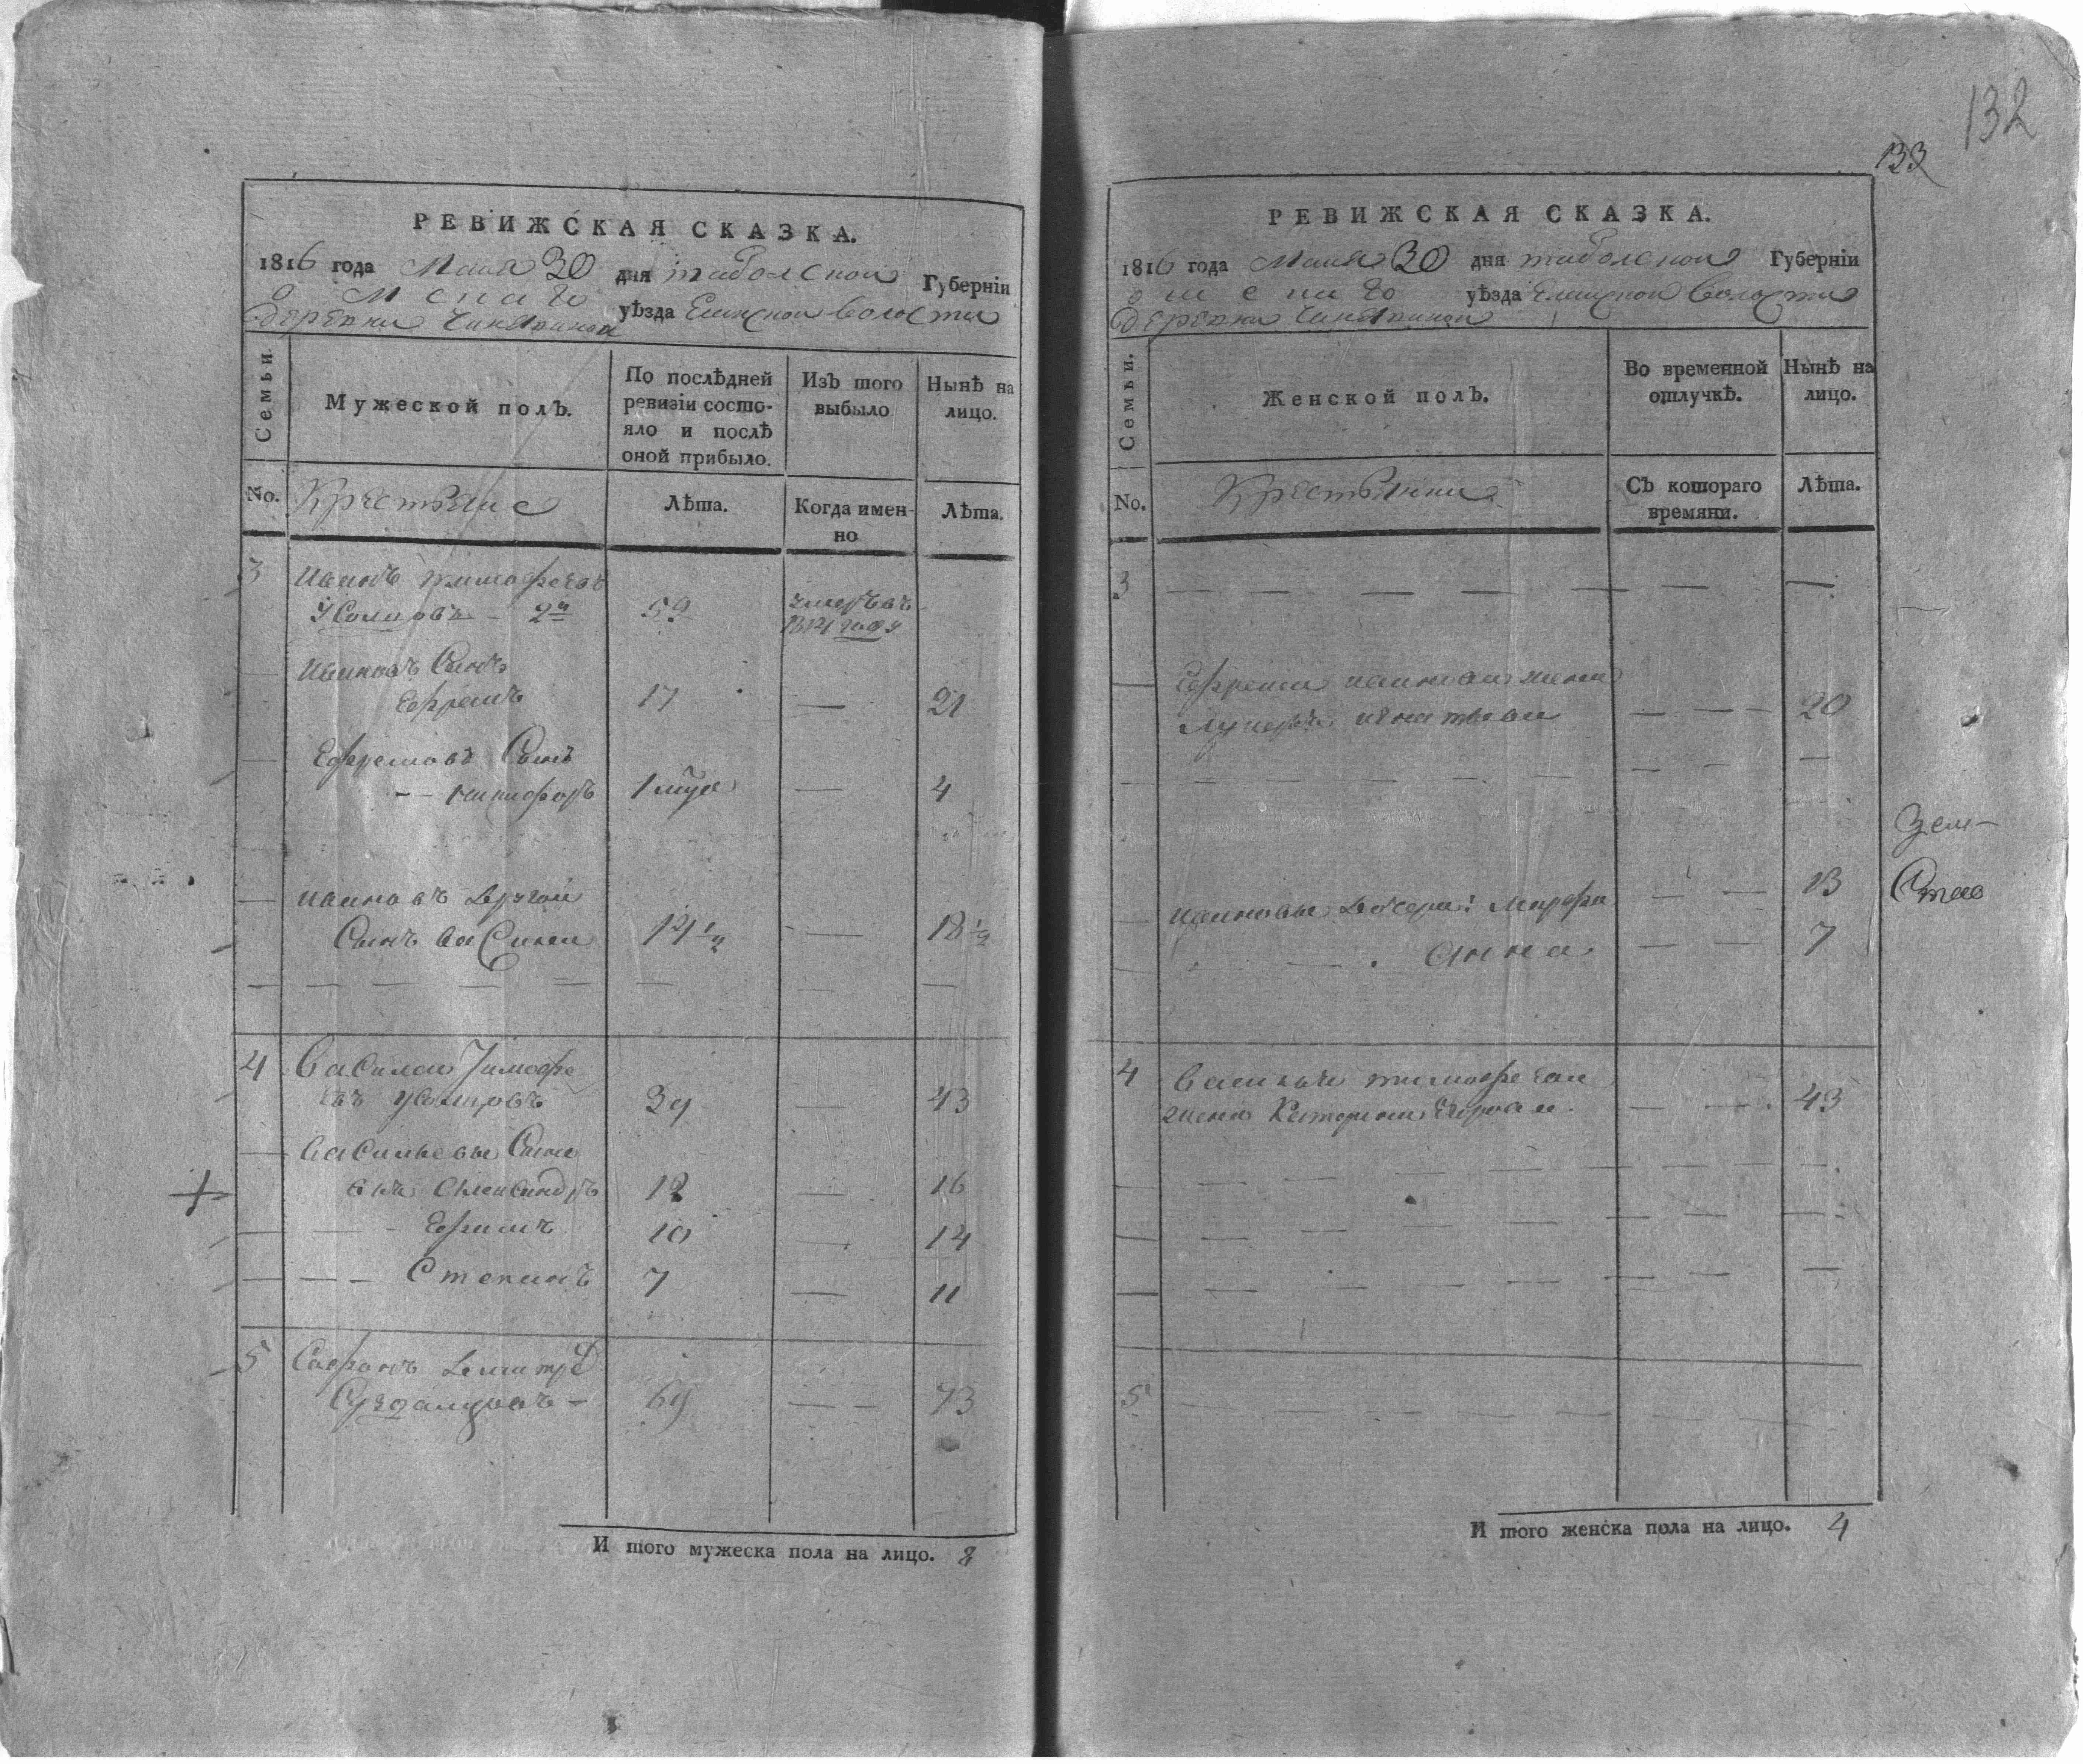 132
133
РЕВИЖСКАЯ СКАЗКА.
1816 года Маия 30 дня тобольской Губерніи
Омскаго уѣзда Еланской волости
деревни
Семьи.
Мужеской полъ.
По послѣдней ревизіи состояло и послѣ оной прибыло.
Изъ того выбыло
Нынѣ на лицо.
No.
Крестьяне
Лѣта.
Когда именно
Лѣта.
3
Иванъ тимофеевъ
Усолцовъ - 2й 59 умеръ въ
1814 году
Ивановъ Сынъ
Ефремъ 17 — 21
Ефремовъ Сынъ
— никифоръ 1 — 4
Ивановъ другой
Сынъ василей 14 1/2 — 18 1/2
4 Василей Тимофе
евъ Усолцовъ 39 — 43
Васильевы Сыно
вья Александръ 12 — 16
Ефимъ 10 — 14
Степанъ 7 — 11
5 Софонъ
69 — 73
И того мужеска пола на лицо. 8
РЕВИЖСКАЯ СКАЗКА.
1816 года Маия 30 дня тобольской Губерніи
омскаго уѣзда Еланской волости
деревни
Семьи.
Женской полъ.
Во временной отлучкѣ.
Нынѣ на лицо.
No.
Крестьянки
Съ котораго времяни.
Лѣта.
3
Ефрема иванова жена
игнатьева — — — 20
ивановы дочери: Марфа — — 13
Анна — — 7
4 Василья тимофеева
жена Катерина — — 43
5
И того женска пола на лицо. 4
Зем-
Ста